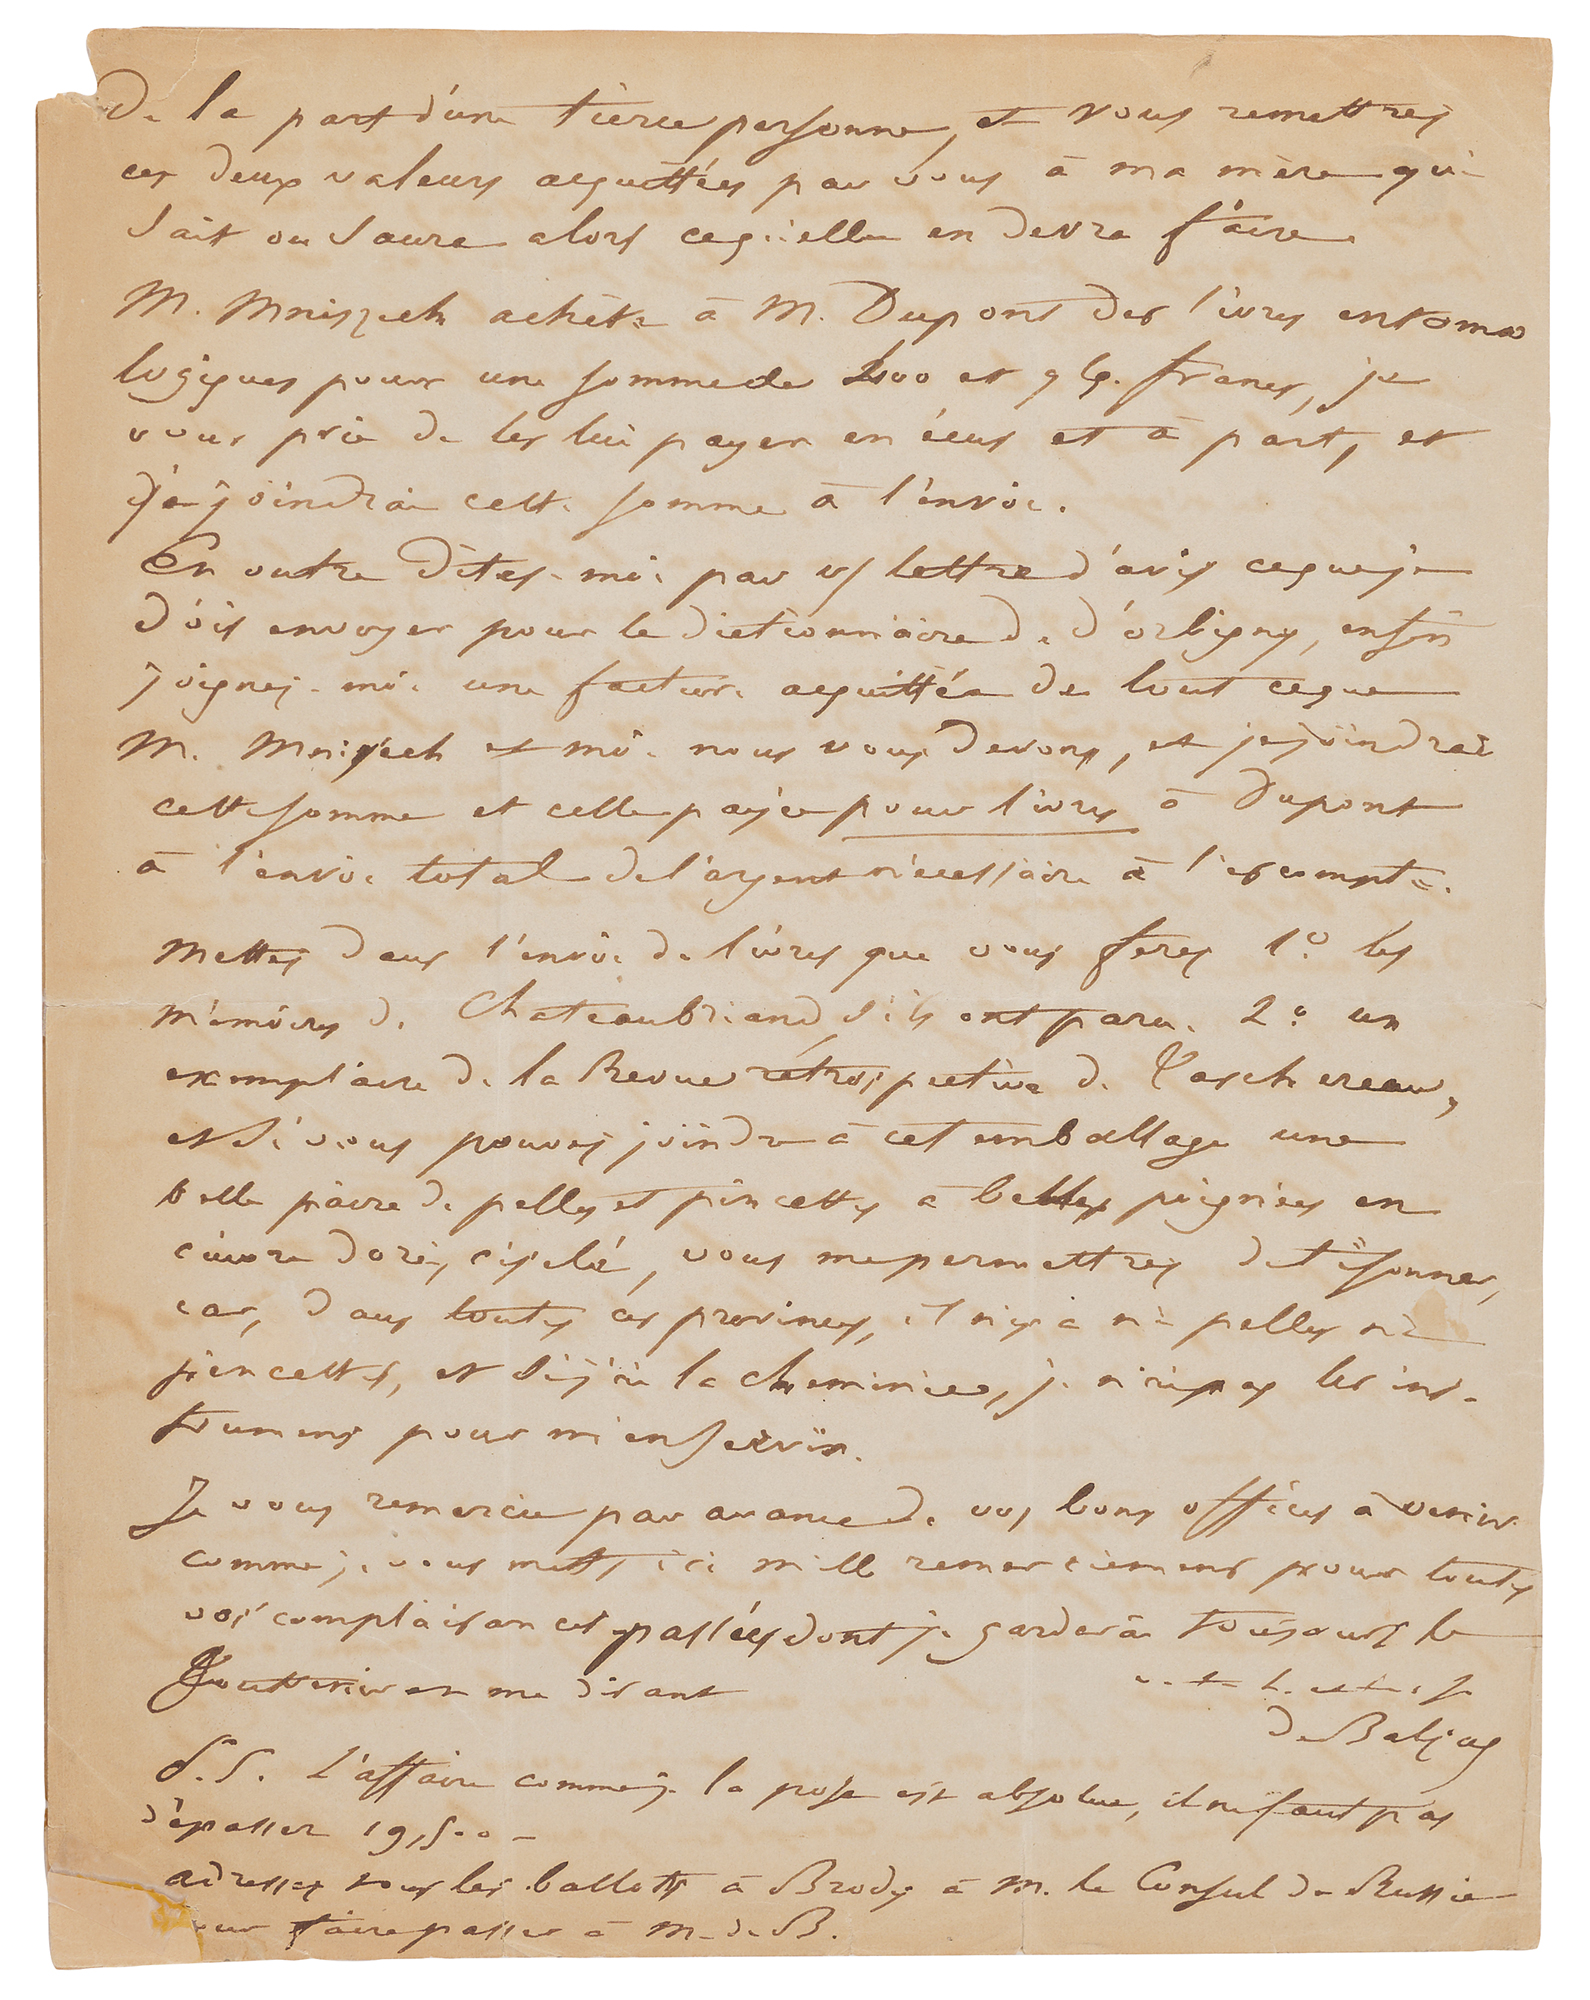 de la part d'une tierce personne, et vous remettrez
ces deux valeurs acquittées par vous à ma mère qui
sait ou saura alors ce qu'elle en devra faire.
M. Mniszech achète à M. Dupont des livres entomo
logiques pour une somme de 200 et qlq. francs, je
vous prie de les lui payer en écus et à part, et
je joindrai cette somme à l'envoi.
En outre dites-moi par vs lettre d'avis ce que je
dois envoyer pour le dictionnaire de d'Orbigny, enfin
joignez-moi une facture acquittée de tout ce que
M. Mniszech et moi nous vous devons, et je joindrai
cette somme et celle payée pour livres à Dupont
à l'envoi total de l'argent nécessaire à l'escompte.
Mettez dans l'envoi de livres que vous ferez 1º les
mémoires de Chateaubriand, s'ils ont paru. 2º un
exemplaire de la Revue rétrospective de Taschereau,
et si vous pouvez joindre à cet emballage une
belle paire de pelles et pincettes à belles poignées en
cuivre doré, ciselé, vous me permettrez de tisonner,
car, dans toutes ces provinces, il n'y a ni pelles ni
pincettes, et si j'ai la cheminée, je n'ai pas les ins-
trumens pour m'en servir.
Je vous remercie par avance de vos bons offices à venir
comme je vous mets ici mille remerciemens pour toutes
vos complaisances passées dont je garderai toujours le
souvenir en me disant
de Balzac
P.S. L'affaire comme je la pose est absolue, il ne faut pas
dépasser 19,500 –
adressez tous les ballots à Brody à M. le Consul de Russie
pour faire passer à M. de B.